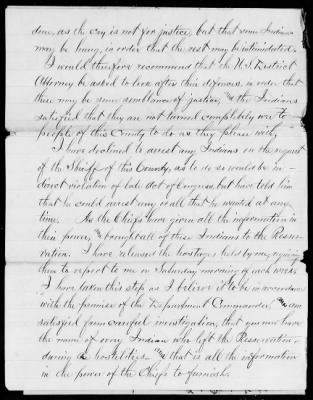 done, as the cry is not for justice, but that some Indians
may be hung, in order that the rest may be intimidated.
I would therefore recommend that the U.S. District
Attorney be asked to look after this defences, in order that
there may be some semblance of justice, and the Indians
satisfied that they are not turned completely over to
people of this County to do as they please with.
I have declined to arrest any Indians on the request
of the Sheriff of this County, as to do so would be in
direct violation of late Act of Congress, but have told him
that he could arrest any or all that he wanted at any
time. As the Chiefs have given all the information in
their power, and brought all of these Indians to the Reser-
vation. I have released the hostages held by me, requiring
them to report to me on Saturday morning of each week.
I have taken this step as I believe it to be in accordance
with the promise of the Department Commander, and am
satisfied from careful investigation, that you now have
the name of every Indian who left the Reservation
during the hostilities and that is all the information
in the power of the Chiefs to furnish.